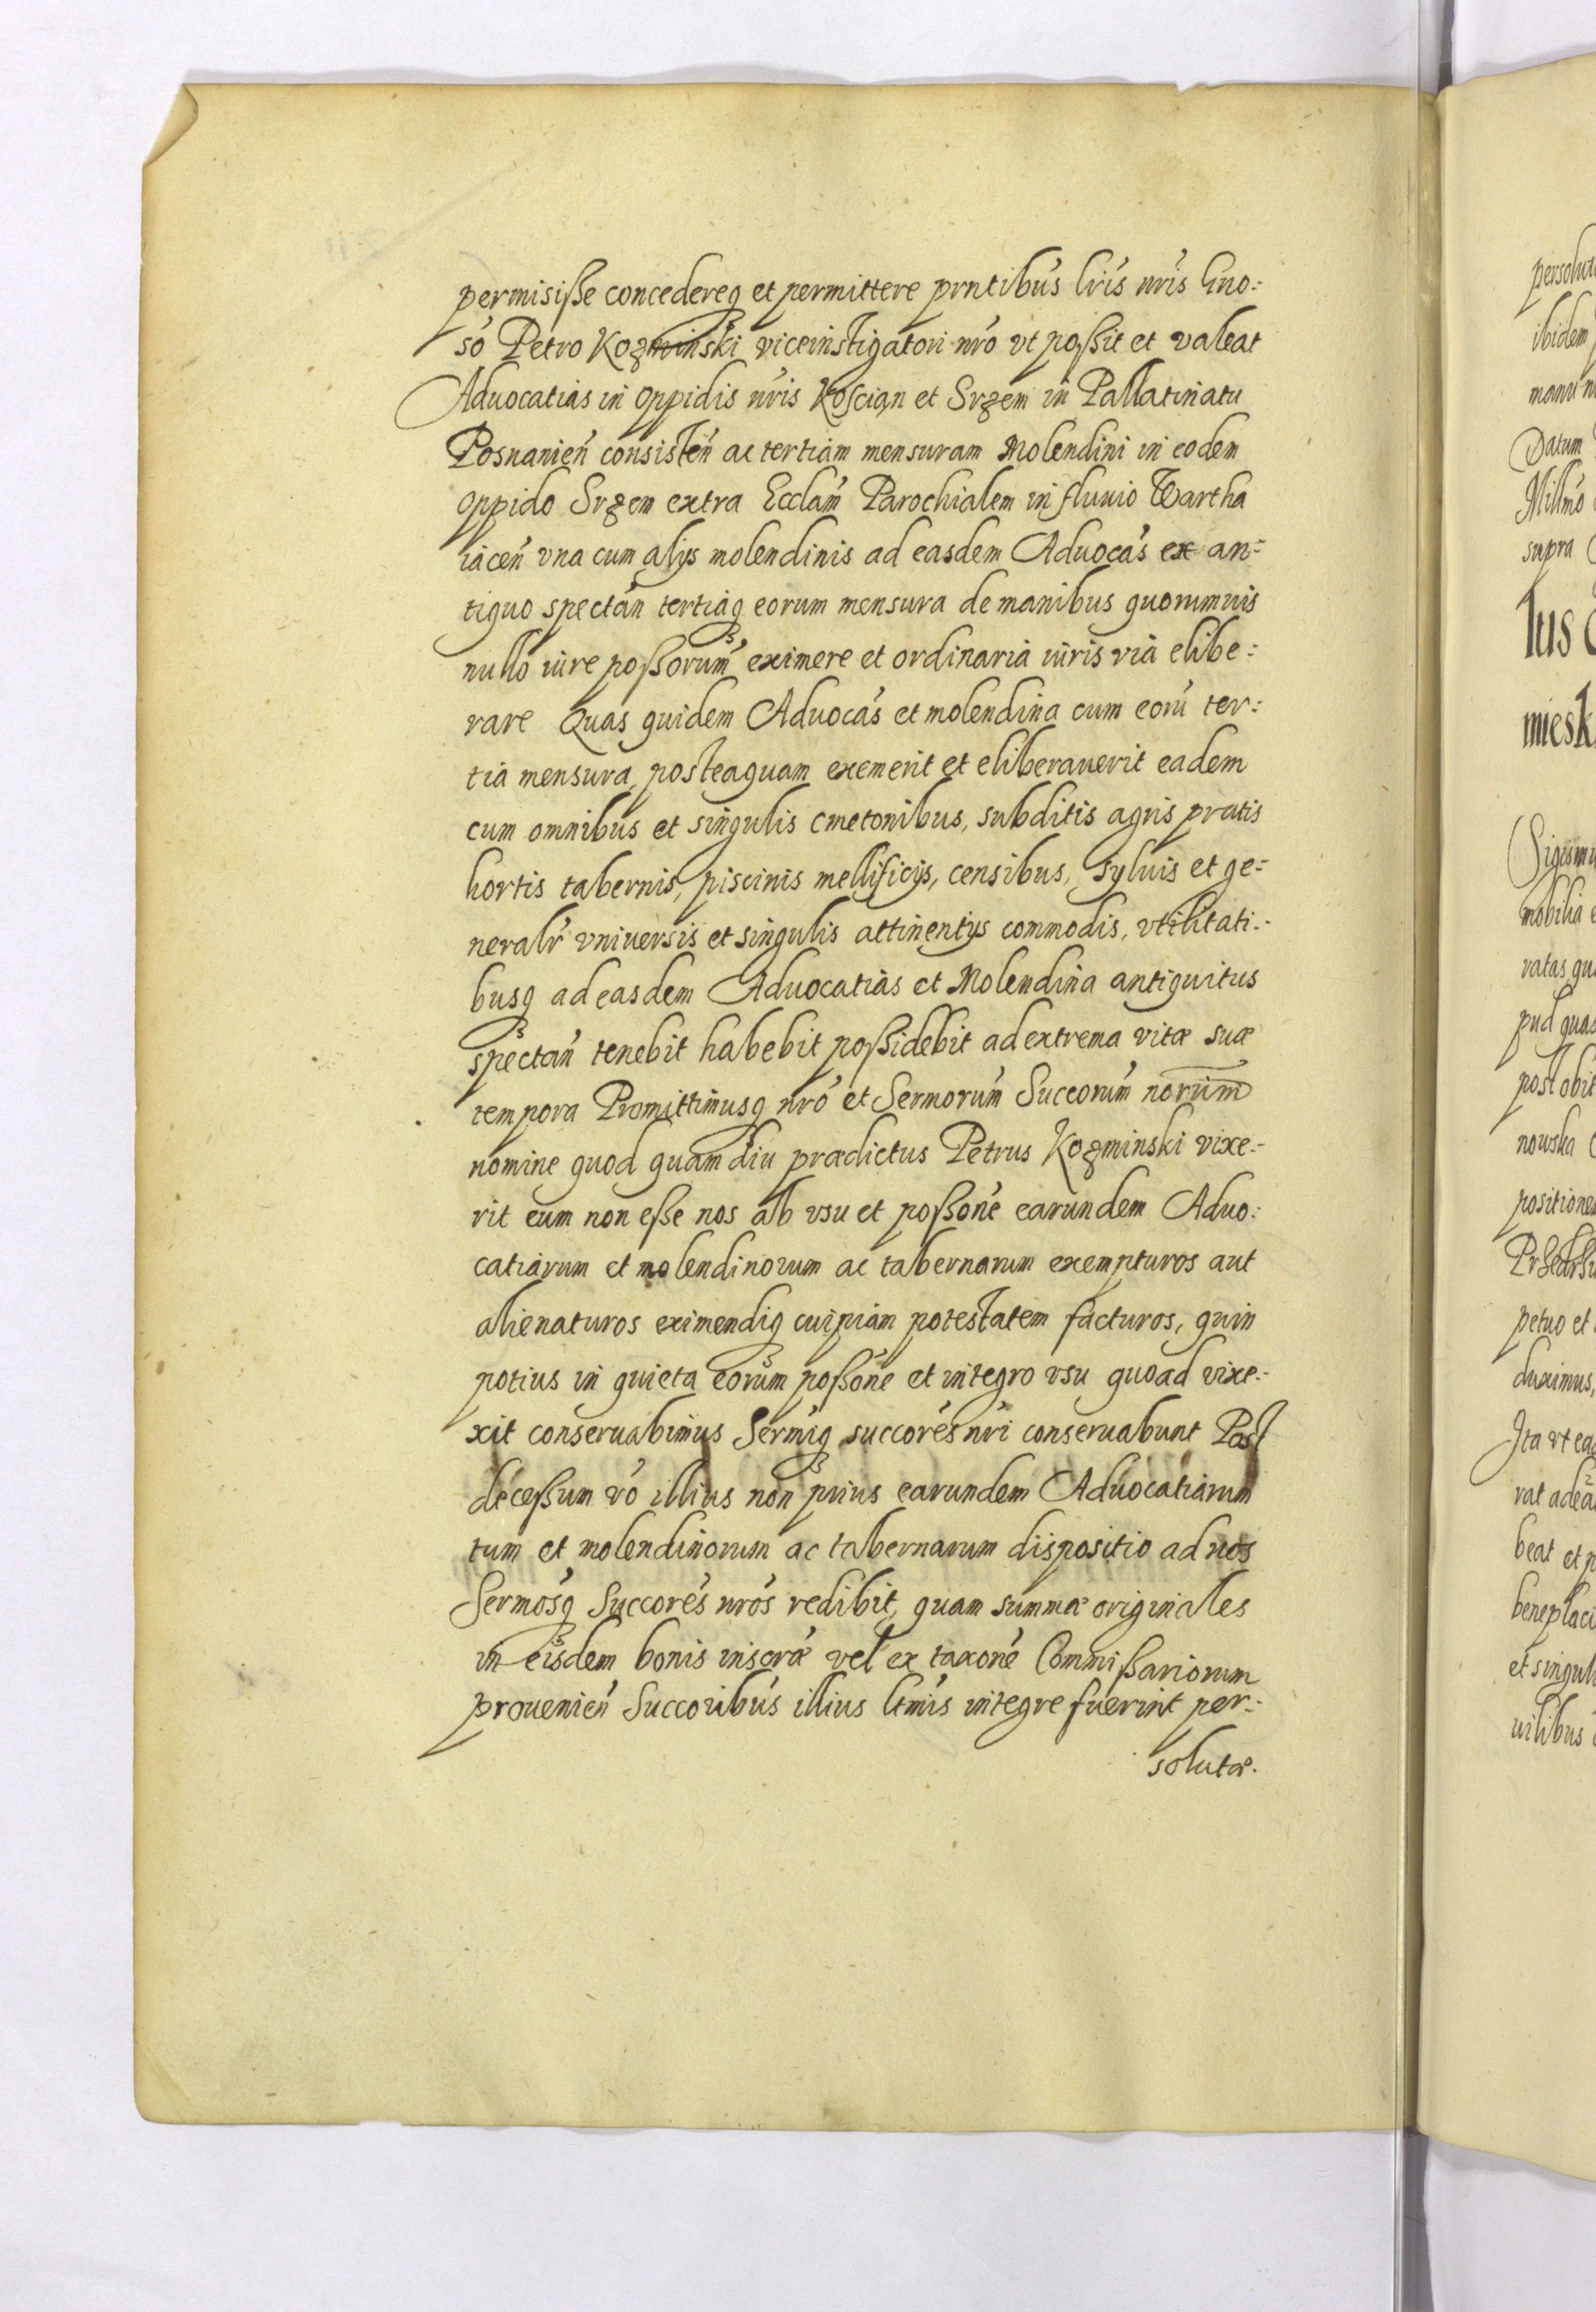 permisiſse concedereq et permittere prntibús lrís nrís Gno:
só Petro Kozminski viceinstigatori nró vt poſsit et valeat
Aduocatias in oppidis nrís Koscian et Srzem in Pallatinatu
Posnanień consisteń ac tertiam mensuram Molendini in eodem
oppido Srzem extra Ecclám Parochialem in fluuio Wartha
iaceń vna cum alijs molendinis ad easdem Aduocás ex an:
tiquo spectáń tertiaq eorum mensura de manibus quorumuis
nullo iure poſsorum eximere et ordinaria iuris via elibe:
rare Quas quidem Aduocás et molendina cum eorú ter:
tia mensura, posteaquam exemerit et eliberauerit eadem
cum omnibus et singulis cmetonibus, subditis agris pratis
hortis tabernis, piscinis mellificijs, censibus, syluis et ge:
neralr vniuersis et singulis attinentijs commodis, vtilitati:
busq ad easdem Aduocatias et Molendina antiquitus
spectań tenebit habebit poſsidebit ad extrema vitæ suæ
tempora Promittimusq nró et Sermorum Succorum norum
nomine quod quam diu prædictus Petrus Kozminski vixe:
rit eum non eſse nos ab vsu et poſsoné earundem Aduo:
catiarum et molendinorum ac tabernarum exempturos aut
alienaturos eximendiq cuipiam potestatem facturos, quin
potius in quieta eorum poſsoné et integro vsu quoad vixe:
xit conseruabimus Sermiq succorés nri conseruabunt Post
deceſsum vó illius non prius earundem Aduocatiarum
tum et molendinorum ac tabernarum dispositio ad nos
Sermosq Succorés nrós redibit, quam summæ originales
in eisdem bonis inscræ vel ex taxoné Commiſsariorum
prouenień Succoribús illius ltmis integre fuerint per:
solutæ.
persolut
ibidem
manu
Datum
Millmó
supra
Ius
miesk
Sigismu
mobilia
ratas qu
pud quas
post obit
nowska
position
petuo et
duximus,
Ita vt ea
rat
beat et p
beneplaci
et singul
uilibus